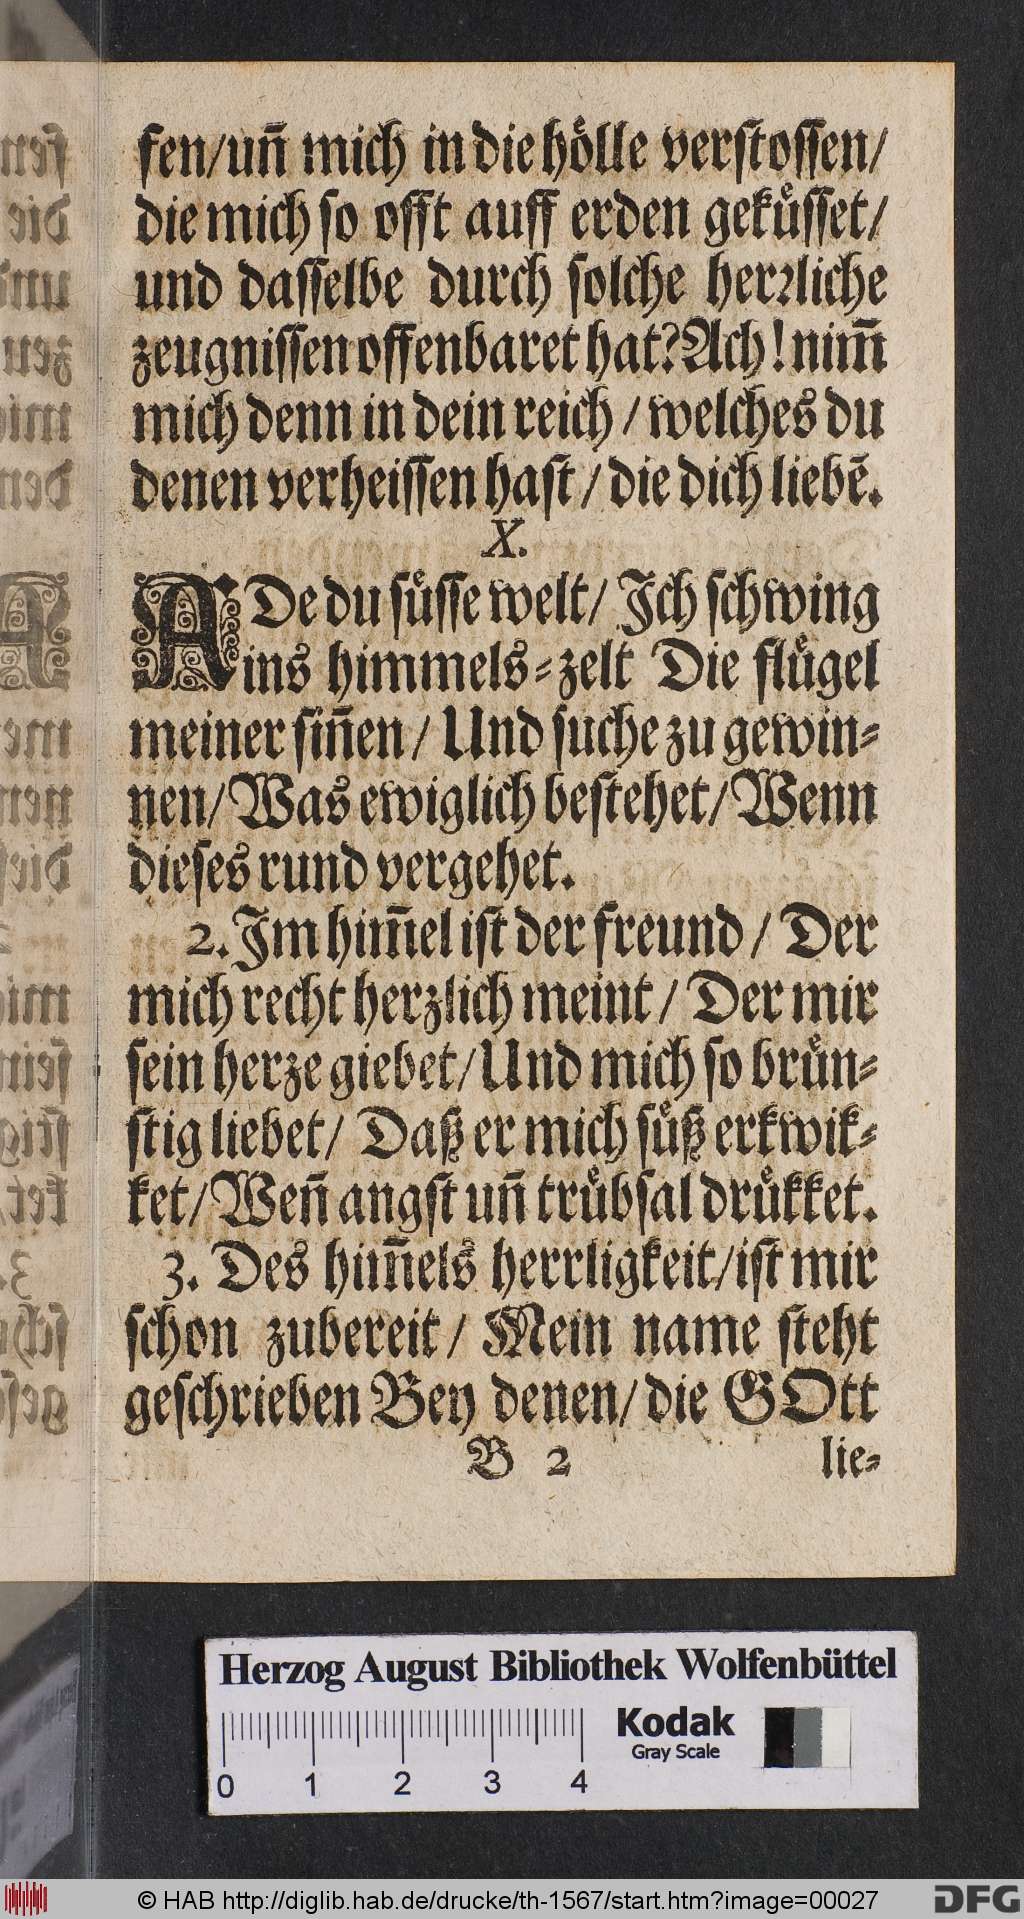 fen/uñ mich in die hoͤlle verstossen/
die mich so offt auff erden gekuͤsset/
und dasselbe durch solche herꝛliche
zeugnissen offenbaret hat? Ach! nim̄
mich denn in dein reich / welches du
denen verheissen hast / die dich liebē.
X.
ADe du suͤsse welt/ Jch schwing
ins himmels-zelt Die fluͤgel
meiner siñen / Und suche zu gewin-
nen/ Was ewiglich bestehet/ Wenn
dieses rund vergehet.
2. Jm him̄el ist der freund / Der
mich recht herzlich meint / Der mir
sein herze giebet/ Und mich so bruͤn-
stig liebet/ Daß er mich suͤß erkwik-
ket/ Weñ angst uñ truͤbsal druͤkket.
3. Des him̄els herrligkeit/ist mir
schon zubereit / Mein name steht
geschrieben Bey denen/ die GOtt
B 2 lie-
Herzog August Bibliothek Wolfenbüttel
Kodak
Gray Scale
0 1 2 3 4
© HAB http://diglib.hab.de/drucke/th-1567/start.htm?image=00027
DFG